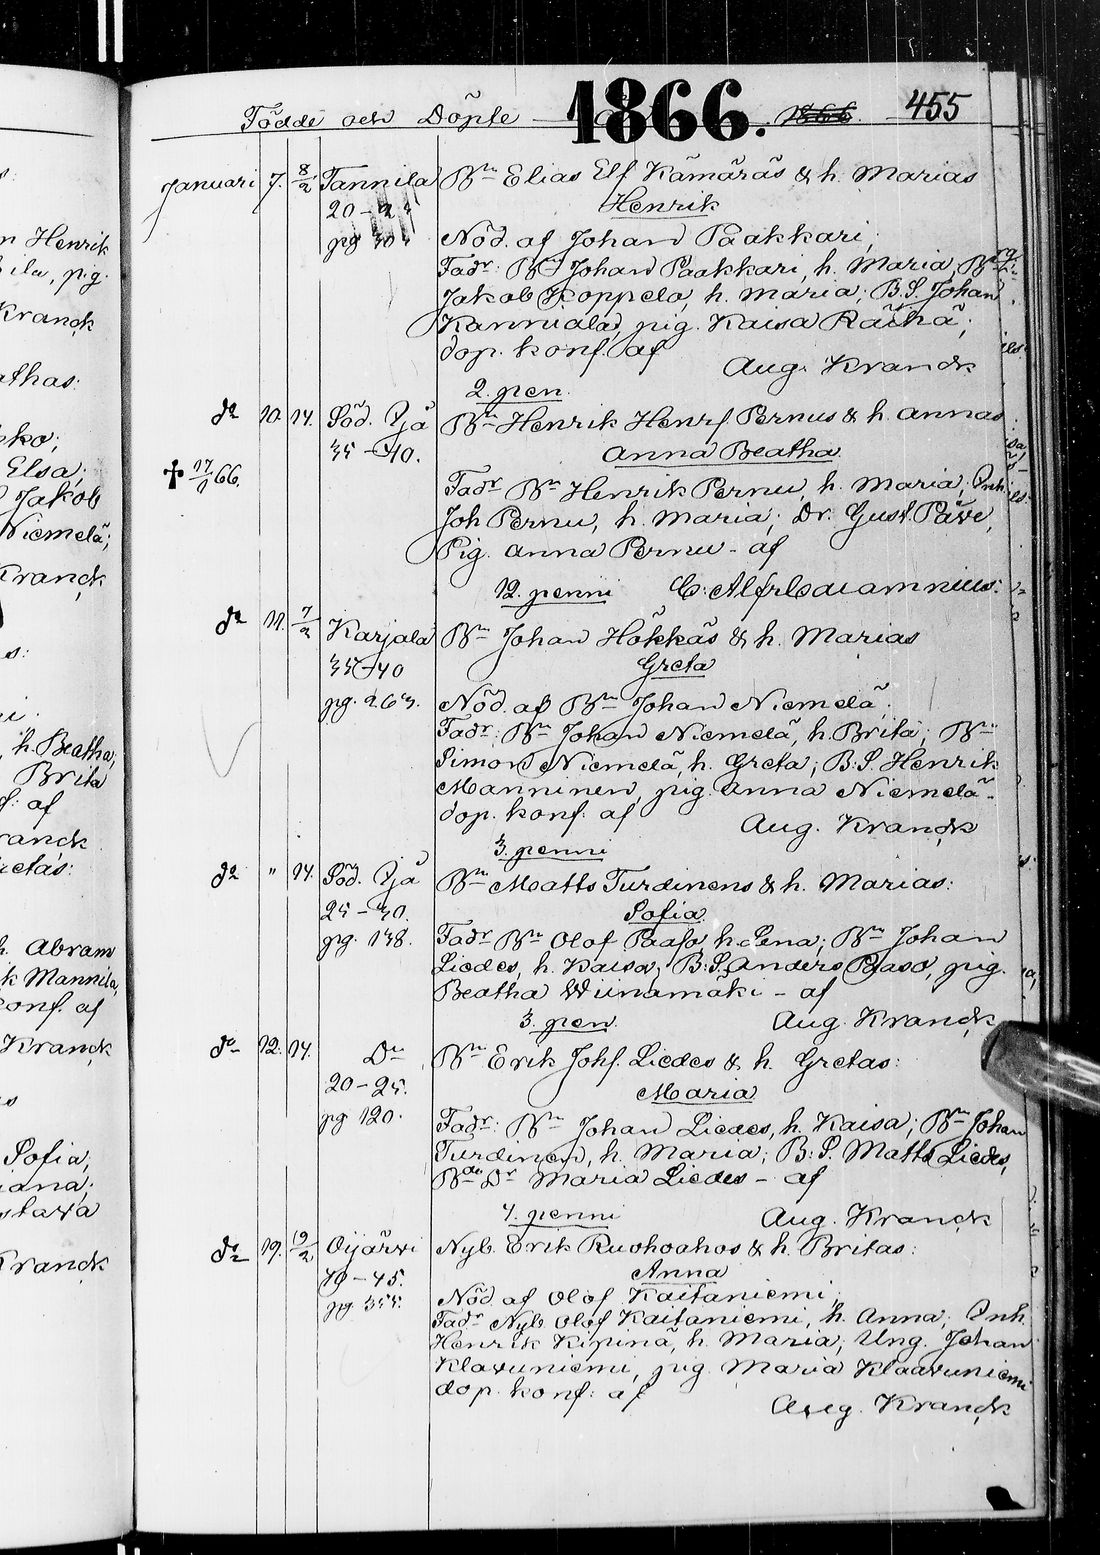 Födde och Döpte 1866. 1866. 455
Januari 7. 8/2 Tannila Bn Elias Elf Kämäräs & h. Marias
20-25 Henrik
pg 30 Nöd. af Johan Paakkari;
Fadr: Bn Johan Paakkari, h. Maria; Bn
Jakob Koppelo, h. Maria; B.S. Johan
Kanniala, pig. Kaisa Räihä;
dop. konf. af
Aug. Kranck
2. pen.
do 10. 14. Söd. Ijå Bn Henrik Henrs. Pernus & h. Annas
35-40. Anna Beatha
✝ 17/1 66. Fadr Bn Henrik Pernu, h. Maria, Inh
Joh Pernu, h. Maria; Dr. Gust. Päve,
Pig. Anna Pernu - af
12. penni C: Alfr
do 11. 7/2 Karjala Bn Johan Hökkäs & h. Marias
35-40 Greta
pg. 263. Nöd. af Bn Johan Niemelä.
Fadr: Bn Johan Niemelä, h. Brita; Bn
Simon Niemelä, h. Greta; B.S. Henrik
Manninen, pig. Anna Niemelä-
dop. konf. af
Aug. Kranck
3. penni
do " 14. Söd. Ijå Bn Matts Turdinens & h. Marias:
25-30. Sofia.
pg. 138. Fadr Bn Olof Paaso, h. Lena; Bn Johan
Liedes, h. Kaisa; B.S. Anders Paso, pig.
Beatha Wiinamäki - af
3. pen. Aug. Kranck
do 12. 14. Do Bn Erik Johs. Liedes & h. Gretas:
20-25. Maria
pg 120. Fadr: Bn Johan Liedes, h. Kaisa; Bn Johan
Turdinen, h. Maria; B.S. Matts Liedes,
Bde Dr Maria Liedes - af
7. penni Aug. Kranck
do 19. 19/2 Oijärvi Nyb. Erik Ruohoahos & h. Britas:
40-45. Anna
pg. 355. Nöd. af Olof Kaitaniemi;
Fadr Nyb. Olof Kaitaniemi, h. Anna; Inh.
Henrik Kipinä, h. Maria; Ung. Johan
Klavuniemi, pig. Maria Klaavuniemi
dop. konf. af
Aug. Kranck